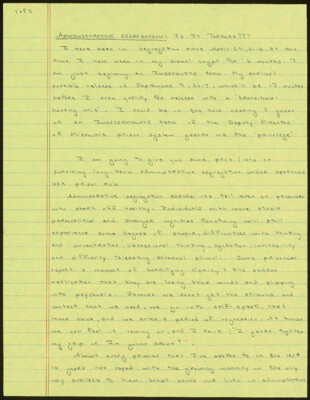 1 of 3
ADMINISTRATIVE SEGREGATION: IS IT TORTURE???
I have been in segregation since April 29, 2016. At this
time I have been in my small target for 6 months. I
am just beginning an Indeterminate term. My earliest
possible release is September 9, 2017, which'll be 17 months
before I even qualify for release into a transitional
housing unit. I could be in the hole
on an Indeterminate term if the Deputy Director
of Missouri's prison system grants me the 'privilege'.
I am going to give you some pros & cons on
surviving long-term administrative segregation under oppressive
prison rule.
Administrative segregation exacts its toll even on prisoners
who start off healthy. Individuals with more stable
personalities and stronger cognitive functioning will still
experience some degree of stupor, difficulties with thinking
and concentration, obsessional thinking, agitation, irritability
and difficulty tolerating external stimuli. Some prisoners
report a moment of horrifying clarity & the sudden
realization that they are losing their minds and slipping
into psychosis. Because we don't get the stimulus and
contact that we need, we go into
inner voice, and we enter a period of regression. At times
we can feel it coming on, and I think, I gotta tighten
my grip or I'm gonna drown.
Almost every prisoner that I've spoke to in the last
16 years had coped with the growing insanity in the only
way available to them. What sounds we live in administrative